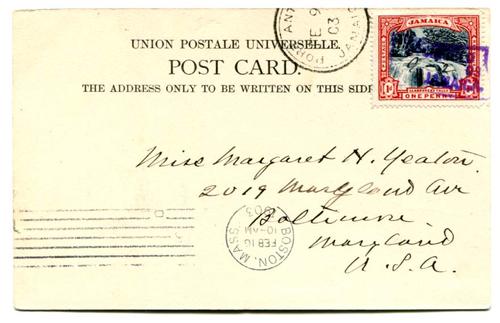 UNION POSTALE UNIVERSELLE.
POST CARD.
THE ADDRESS ONLY TO BE WRITTEN ON THIS SIDE
PORT ANT
JAMAICA
FE 9
03
JAMAICA
ONE PENNY
Miss Margaret H. Yeaton.
2019 Maryland Ave
Baltimore
Maryland
U.S.A.
BOSTON, MASS.
FEB 16
10-AM
1903